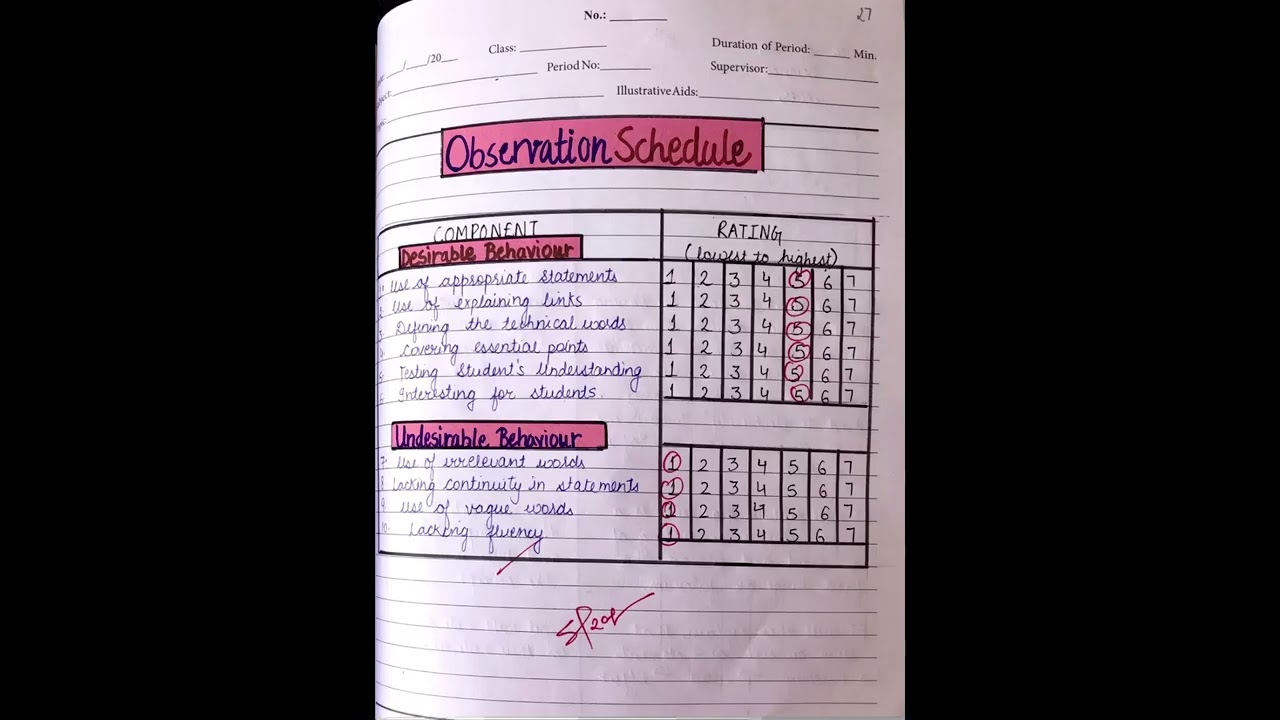 No.: ________ 27
___/___/20___ Class: ________ Duration of Period: ______ Min.
Period No: ________ Supervisor: ________
Illustrative Aids: ________
Observation Schedule
COMPONENT RATING
Desirable Behaviour (lowest to highest)
1. Use of appropriate statements 1 2 3 4 5 6 7
2. Use of explaining links 1 2 3 4 5 6 7
3. Defining the technical words 1 2 3 4 5 6 7
4. Covering essential points 1 2 3 4 5 6 7
5. Testing Student's Understanding 1 2 3 4 5 6 7
6. Interesting for students 1 2 3 4 5 6 7
Undesirable Behaviour
7. Use of irrelevant words 1 2 3 4 5 6 7
8. Lacking continuity in statements 1 2 3 4 5 6 7
9. Use of vague words 1 2 3 4 5 6 7
10. Lacking fluency 1 2 3 4 5 6 7